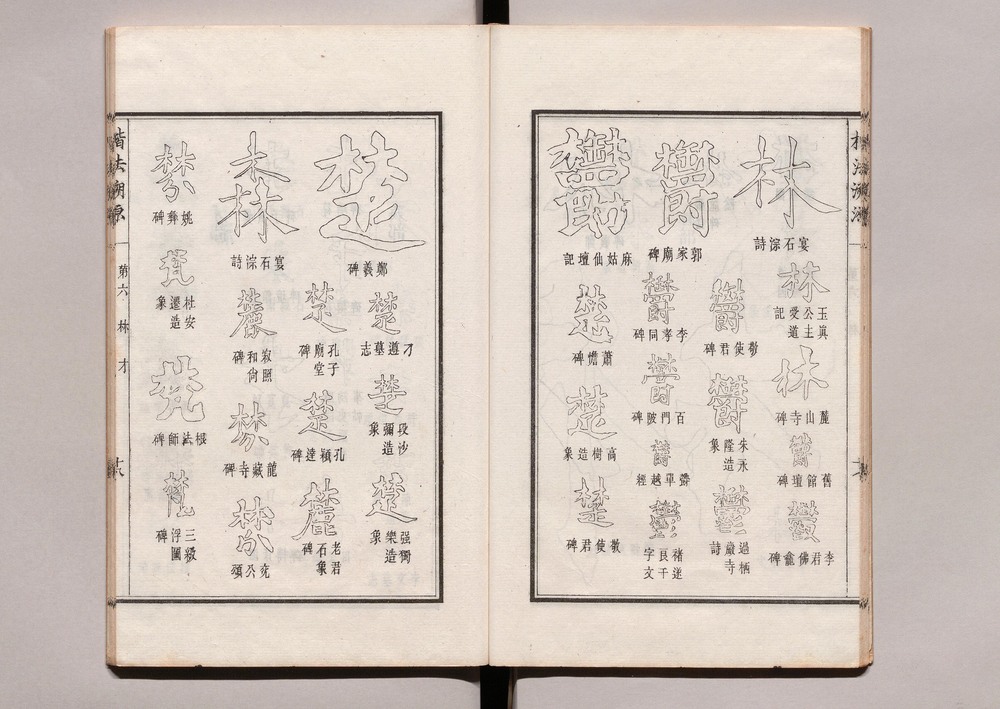 林
宴石淙詩
林
玉眞公主受道記
林
麓山寺碑
鬱
舊館壇碑
鬱
李君佛龕碑
鬱
郭家廟碑
鬱
敬使君碑
鬱
朱永隆造象
鬱
過栖巖寺詩
鬱
麻姑仙壇記
鬱
李孝同碑
鬱
百門陂碑
鬱
鬱單越經
鬱
褚遂良千字文
楚
蕭憺碑
楚
高樹造象
楚
敬使君碑
楷法溯源
第六
林
才
楚
鄭義碑
楚
刁遵墓志
楚
段沙彌造象
楚
强獨樂造象
楚
孔子廟堂碑
楚
孔穎達碑
麓
老君石象碑
森
宴石淙詩
麓
寂照和尙碑
棼
龍藏寺碑
棼
兗公頌
棼
姚彝碑
梵
杜安遷造象
梵
根法師碑
梵
三級浮圖碑